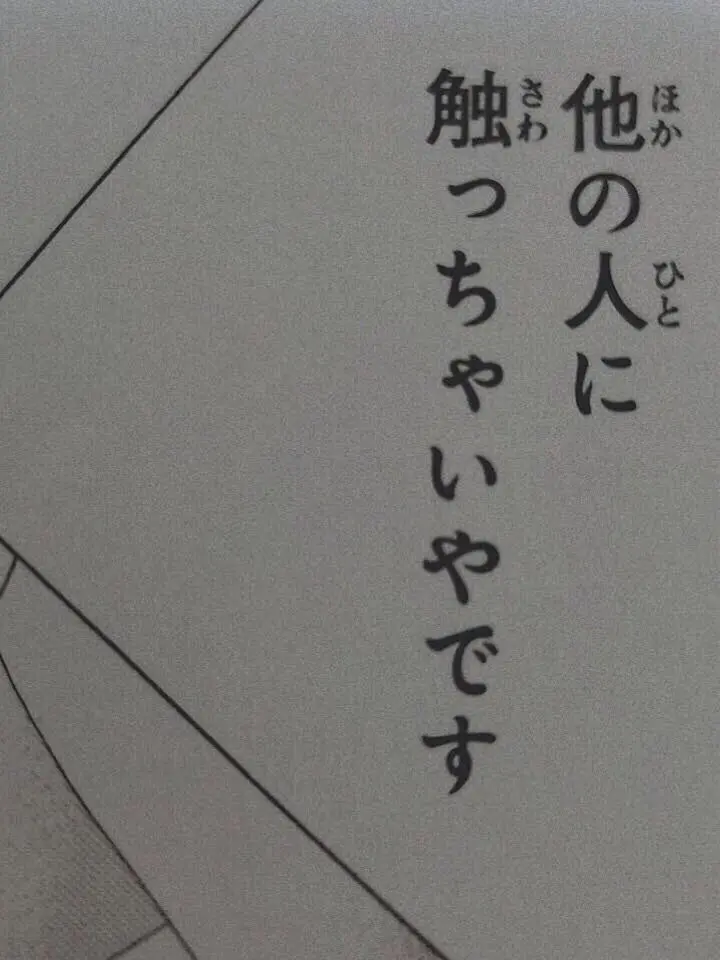 他の人に
触っちゃいやです
ほか
ひと
さわ